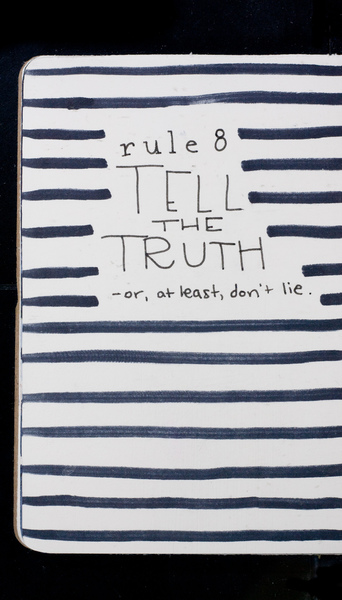 rule 8
TELL
THE
TRUTH
-or, at least, don't lie.